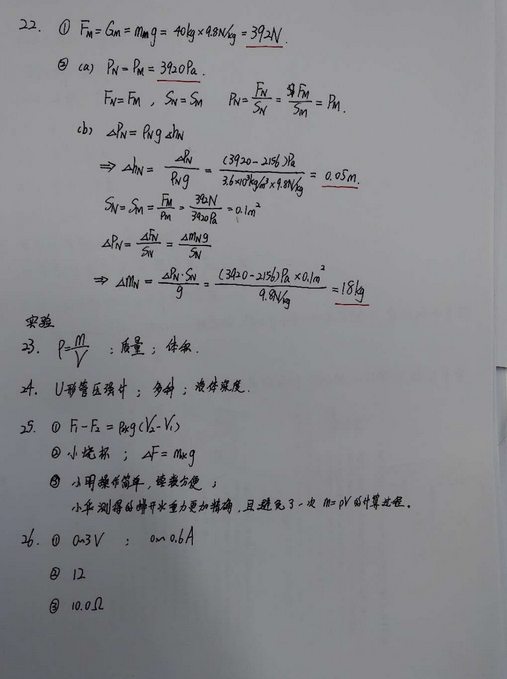 22. ① F_M = G_M = m_M g = 40kg × 9.8N/kg = 392N.
② (a) P_N = P_M = 3920Pa.
F_N = F_M , S_N = S_M P_N = F_N/S_N = F_M/S_M = P_M.
(b) ΔP_N = ρ_N g Δh_N
⇒ Δh_N = ΔP_N/ρ_N g = (3920-2156)Pa/3.6×10³kg/m³×9.8N/kg = 0.05m.
S_N = S_M = F_M/P_M = 392N/3920Pa = 0.1m²
ΔP_N = ΔF_N/S_N = Δm_N g/S_N
⇒ Δm_N = ΔP_N·S_N/g = (3920-2156)Pa×0.1m²/9.8N/kg = 18kg
实验
23. ρ=m/V ; 质量 ; 体积.
24. U形管压强计 ; 多种 ; 液体深度.
25. ① F₁-F₂ = ρ水g(V₂-V₁)
② 小烧杯 ; ΔF = m水g
③ 小明操作简单, 读数方便 ;
小华测得的排开水重力更加精确, 且避免了一次 m=ρV的计算过程.
26. ① 0~3V ; 0~0.6A
② 12
③ 10.0Ω